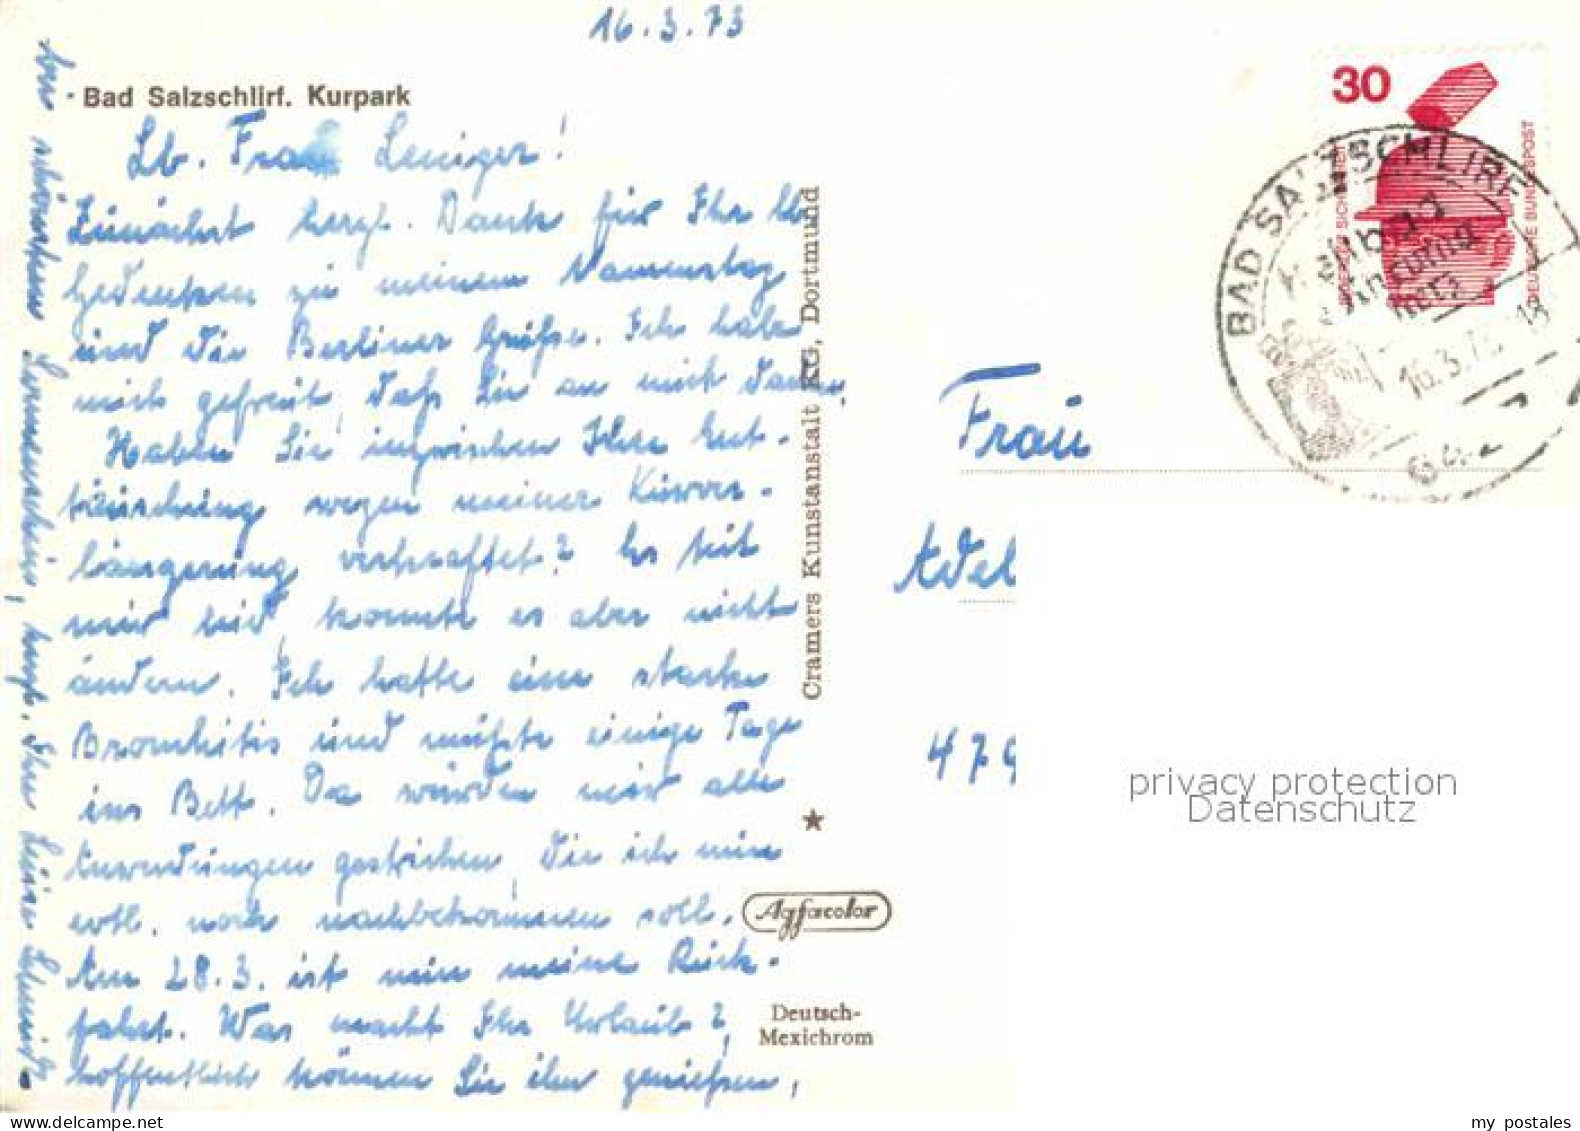 16.3.73
Bad Salzschlirf. Kurpark
Lb. Frau Leniger!
Zunächst herzl. Dank für Ihr lb.
Gedenken zu meinem Namenstag
und die Berliner Grüße. Ich habe
mich gefreut, daß Sie an mich dachten.
Haben Sie inzwischen Ihre Ent-
täuschung wegen meiner Kurver-
längerung verkraftet? Es tut
mir leid, konnte es aber nicht
ändern. Ich hatte eine starke
Bronchitis und mußte einige Tage
ins Bett. Da wurden mir alle
Anwendungen gestrichen, die ich nun
evtl. noch nachbekommen soll.
Am 28.3. ist nun meine Rück-
fahrt. Was macht Ihr Urlaub?,
hoffentlich können Sie ihn genießen,
bei schönstem Sonnenschein, herzl. Ihre Luise
Cramers Kunstanstalt KG, Dortmund
Agfacolor
Deutsch-
Mexichrom
30
DEUTSCHE BUNDESPOST
BAD SALZSCHLIRF
16.3.73
Frau
Adel
479
privacy protection
Datenschutz
my postales